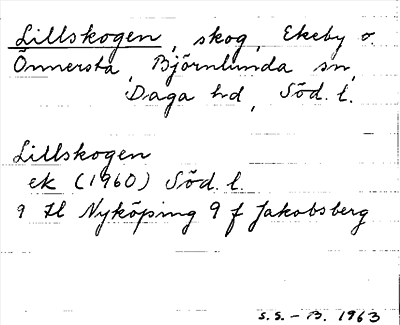 Lillskogen, skog, Ekeby o.
Önnersta, Björnlunda sn,
Daga hd, Söd. l.
Lillskogen
ek (1960) Söd. l.
9 H Nyköping 9 f Jakobsberg
S.S. - B. 1963